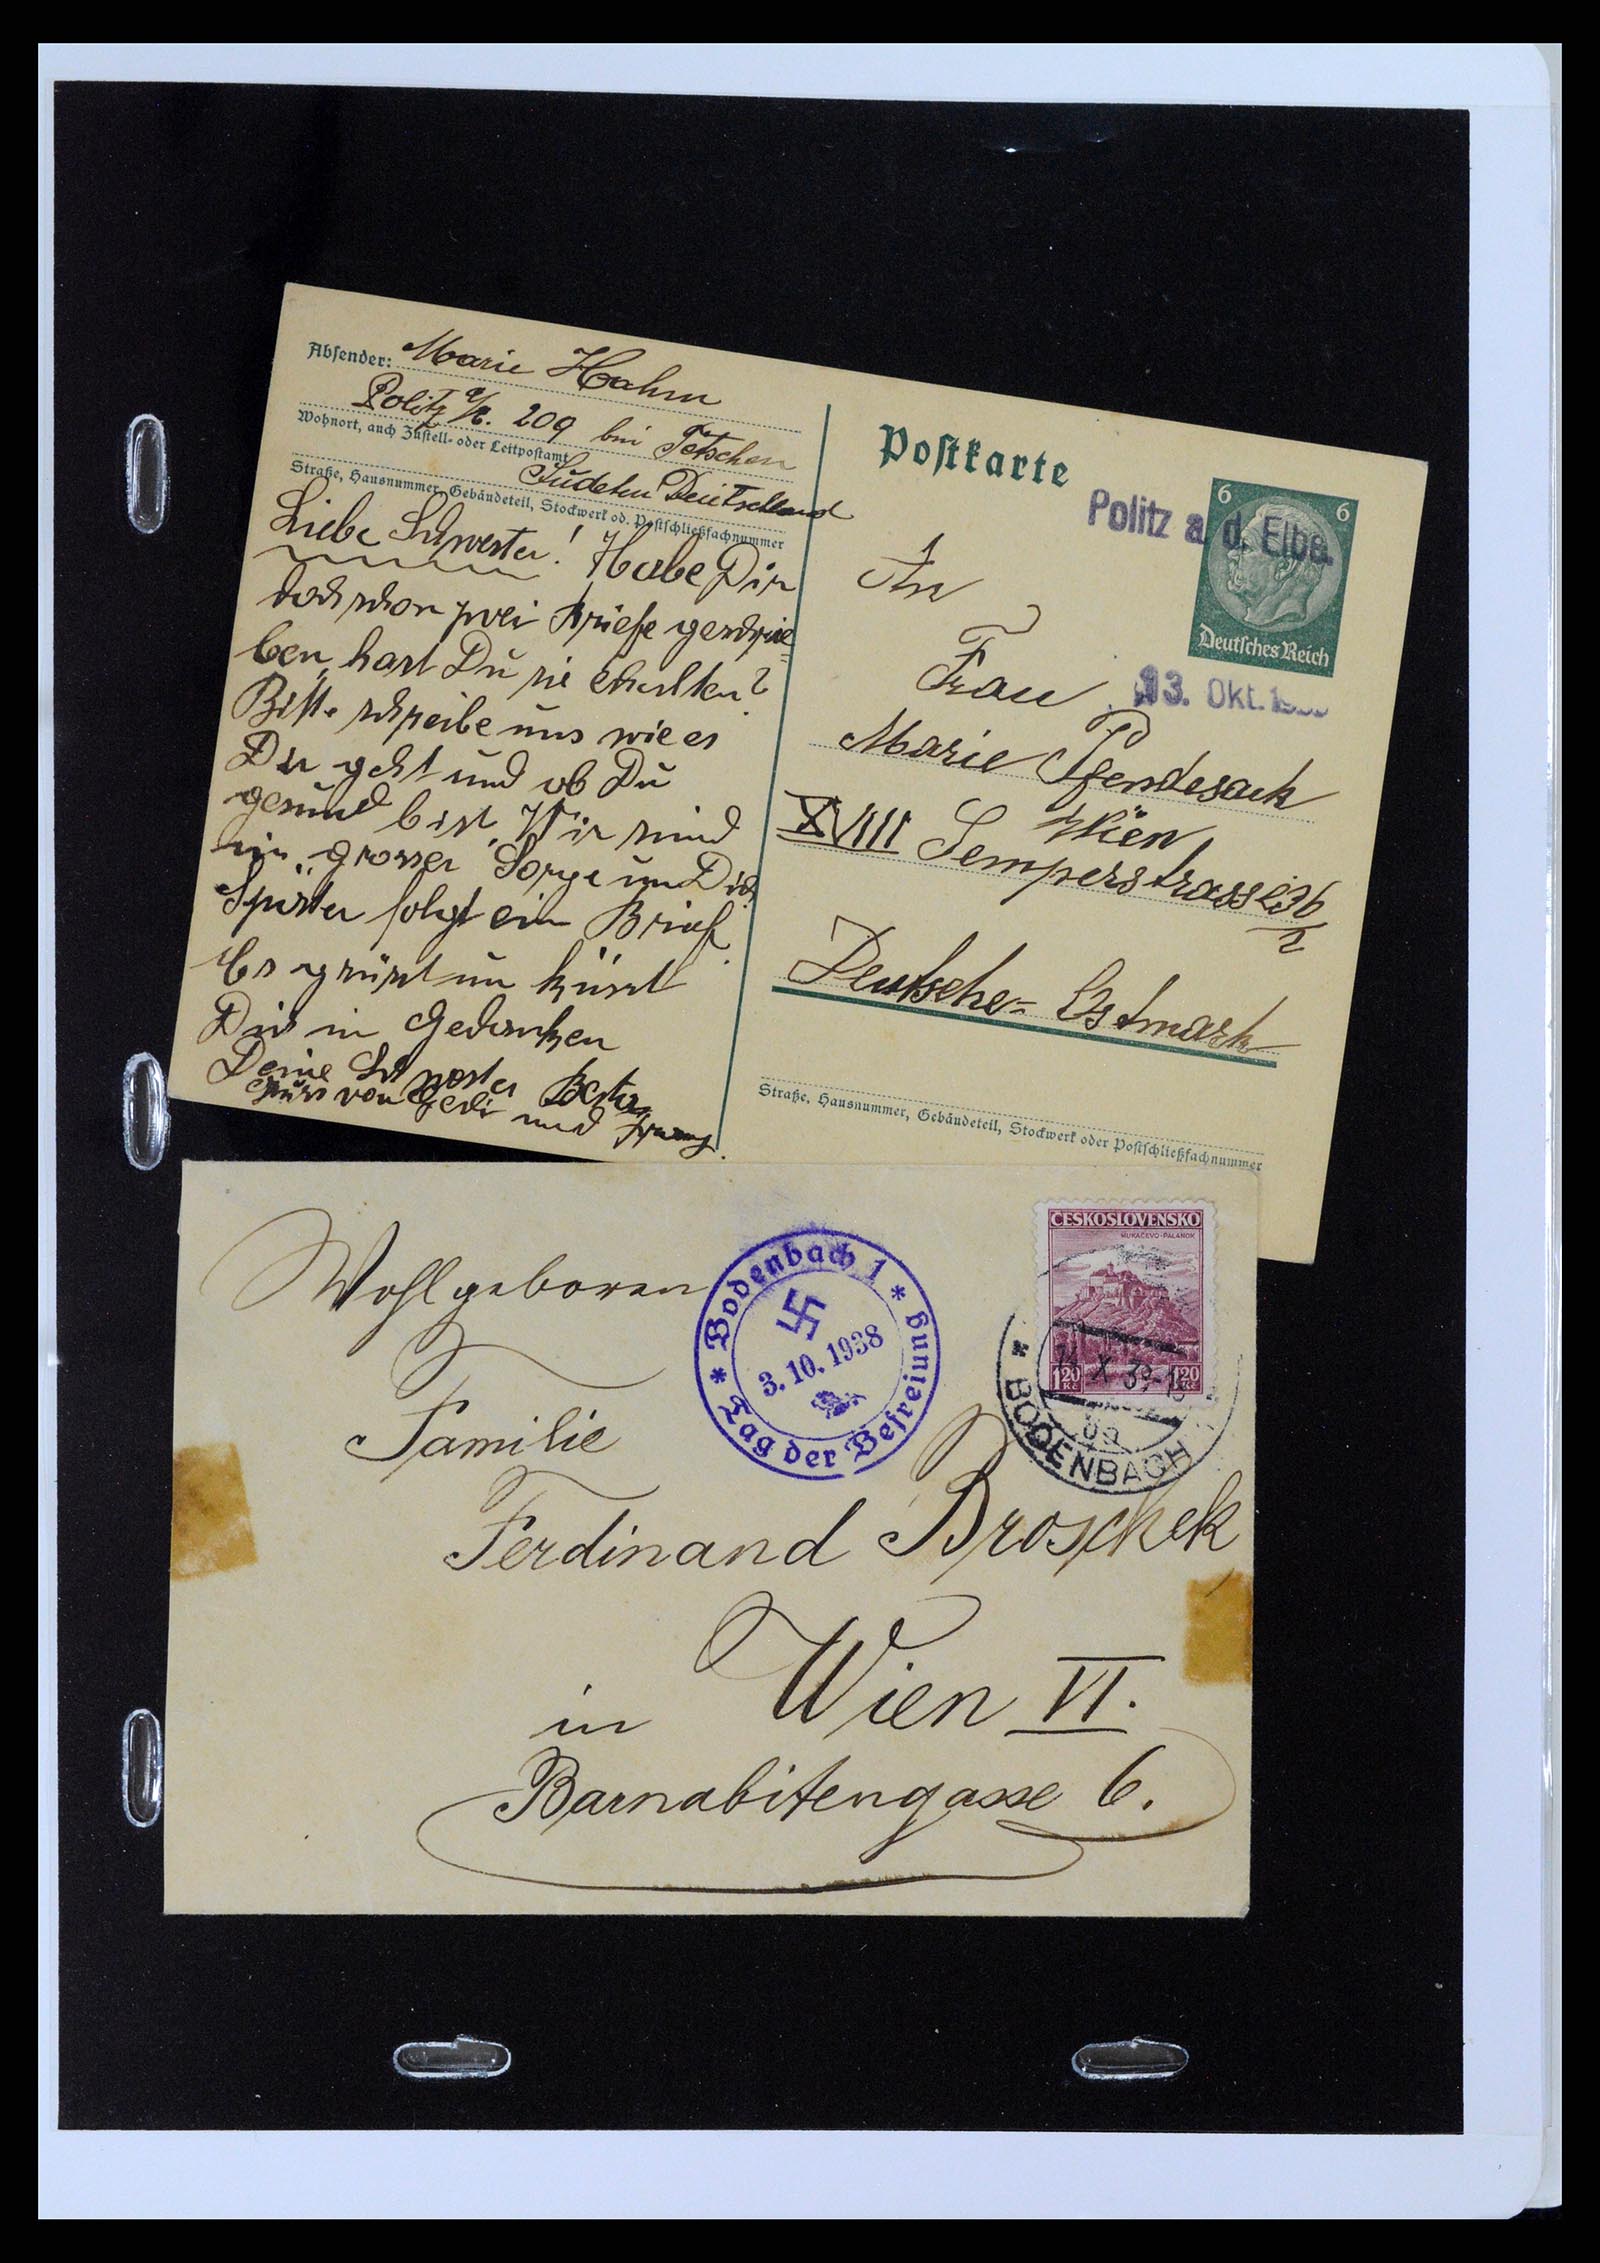 Absender: Marie Hahn
Politz a/E. 209 bei Tetschen
Wohnort, auch Zustell- oder Leitpostamt
Sudeten Deutschland
Straße, Hausnummer, Gebäudeteil, Stockwerk od. Postschließfachnummer
Liebe Schwester! Habe Dir
doch schon zwei Briefe geschrie=
ben, hast Du sie erhalten?
Bitte schreibe uns wie es
Dir geht und ob Du
gesund bist. Wir sind
in grosser Sorge um Dich
Später folgt ein Brief.
Es grüsst un küsst
Dich in Gedanken
Deine Schwester
Gruss von und
Postkarte
6 6
Deutsches Reich
Politz a. d. Elbe.
Okt.
An
Frau
Marie Pfendesack
Wien
XVIII Semperstrasse 36
Deutsche= Ostmark
Straße, Hausnummer, Gebäudeteil, Stockwerk oder Postschließfachnummer
Wohlgeboren
Familie
Ferdinand Broschek
in Wien VI.
Barnabitengasse 6.
* Bodenbach 1 *
3.10.1938
Tag der Befreiung
ČESKOSLOVENSKO
MUKAČEVO-PALANOK
1.20 Kč 1.20 Kč
* BODENBACH